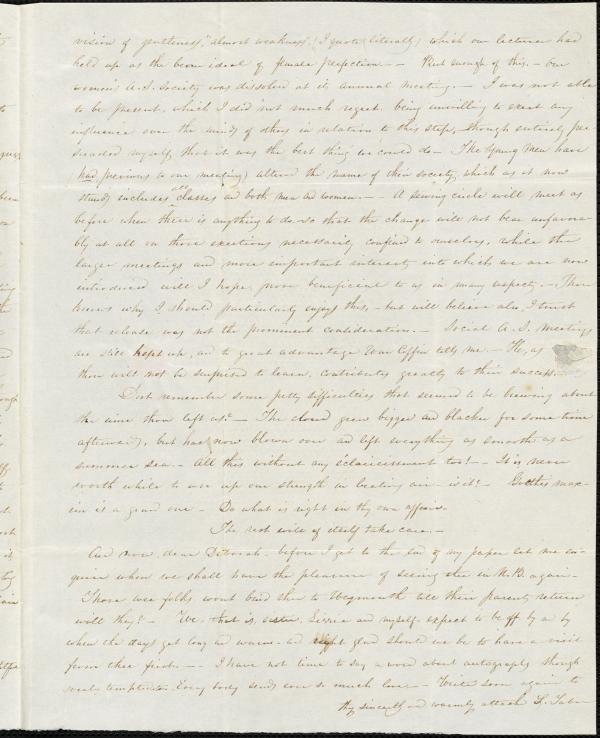 vision of gentleness, "almost weakness" (I quote literally) which our lecturer had
held up as the beau ideal of female perfection. — But enough of this. — Our
women's A.S. Society was dissolved at its annual meeting. — I was not able
to be present, which I did not much regret, being unwilling to exert any
influence over the minds of others in relation to this step, though entirely per
suaded myself, that it was the best thing we could do — The Young Men have
(had previous to our meeting) altered the name of their society, which as it now
stands includes all classes and both men and women. — A sewing circle will meet as
before when there is anything to do so that the change will not bear unfavora
bly at all on those exertions necessarily confined to ourselves, while the
larger meetings and more important interests into which we are now
introduced will I hope, prove beneficial to us in many respects. — Thou
knows why I should particularly enjoy this, — but will believe also, I trust
that release was not the prominent consideration. — Social A.S. Meetings
are still kept up, and to great advantage Wm Coffin tells me. — He, as
thou will not be surprised to learn, contributes greatly to their success. —
Dost remember some petty difficulties that seemed to be brewing about
the time thou left us? — The cloud grew bigger and blacker for some time
afterward, but has now blown over and left everything as smooth as a
summer sea. — All this without any éclaircissement too! — It is never
worth while to use up our strength in beating air — is it? — Goethe's max-
im is a grand one — Do what is right in thy own affairs.
The rest will of itself take care. —
And now, dear Deborah, before I get to the end of my paper let me en-
quire when we shall have the pleasure of seeing thee in N.B. again —
Those wee folks wont bind thee to Weymouth till their parents return
will they? — We, that is, sister, Lizzie and myself expect to be off by and by
when the days get long and warm — and right glad should we be to have a visit
from thee first. — I have not time to say a word about autographs though
Every body sends ever so much love — Write soon again to
thy sincerely and warmly attach